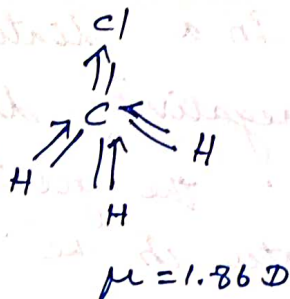 Cl
C
H
H
H
μ = 1.86 D